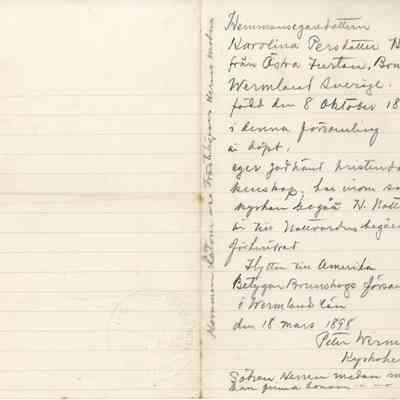 Hemmansegaredottern
Karolina Persdotter N
från Östra Furtan, Bru
Wermland Sverige.
född den 8 Oktober 18
i denna församling
är döpt,
eger godkänd kristendo
kunskap, har inom sv
kyrkan begått H. Natt
är till Nattvardens begå
oförhindrad
Flyttar till Amerika
Betygar Brunskogs försam
i Wermlands län
den 18 mars 1898
Peter Werm
Kyrkoher
Söken Herren medan m
kan finna honom